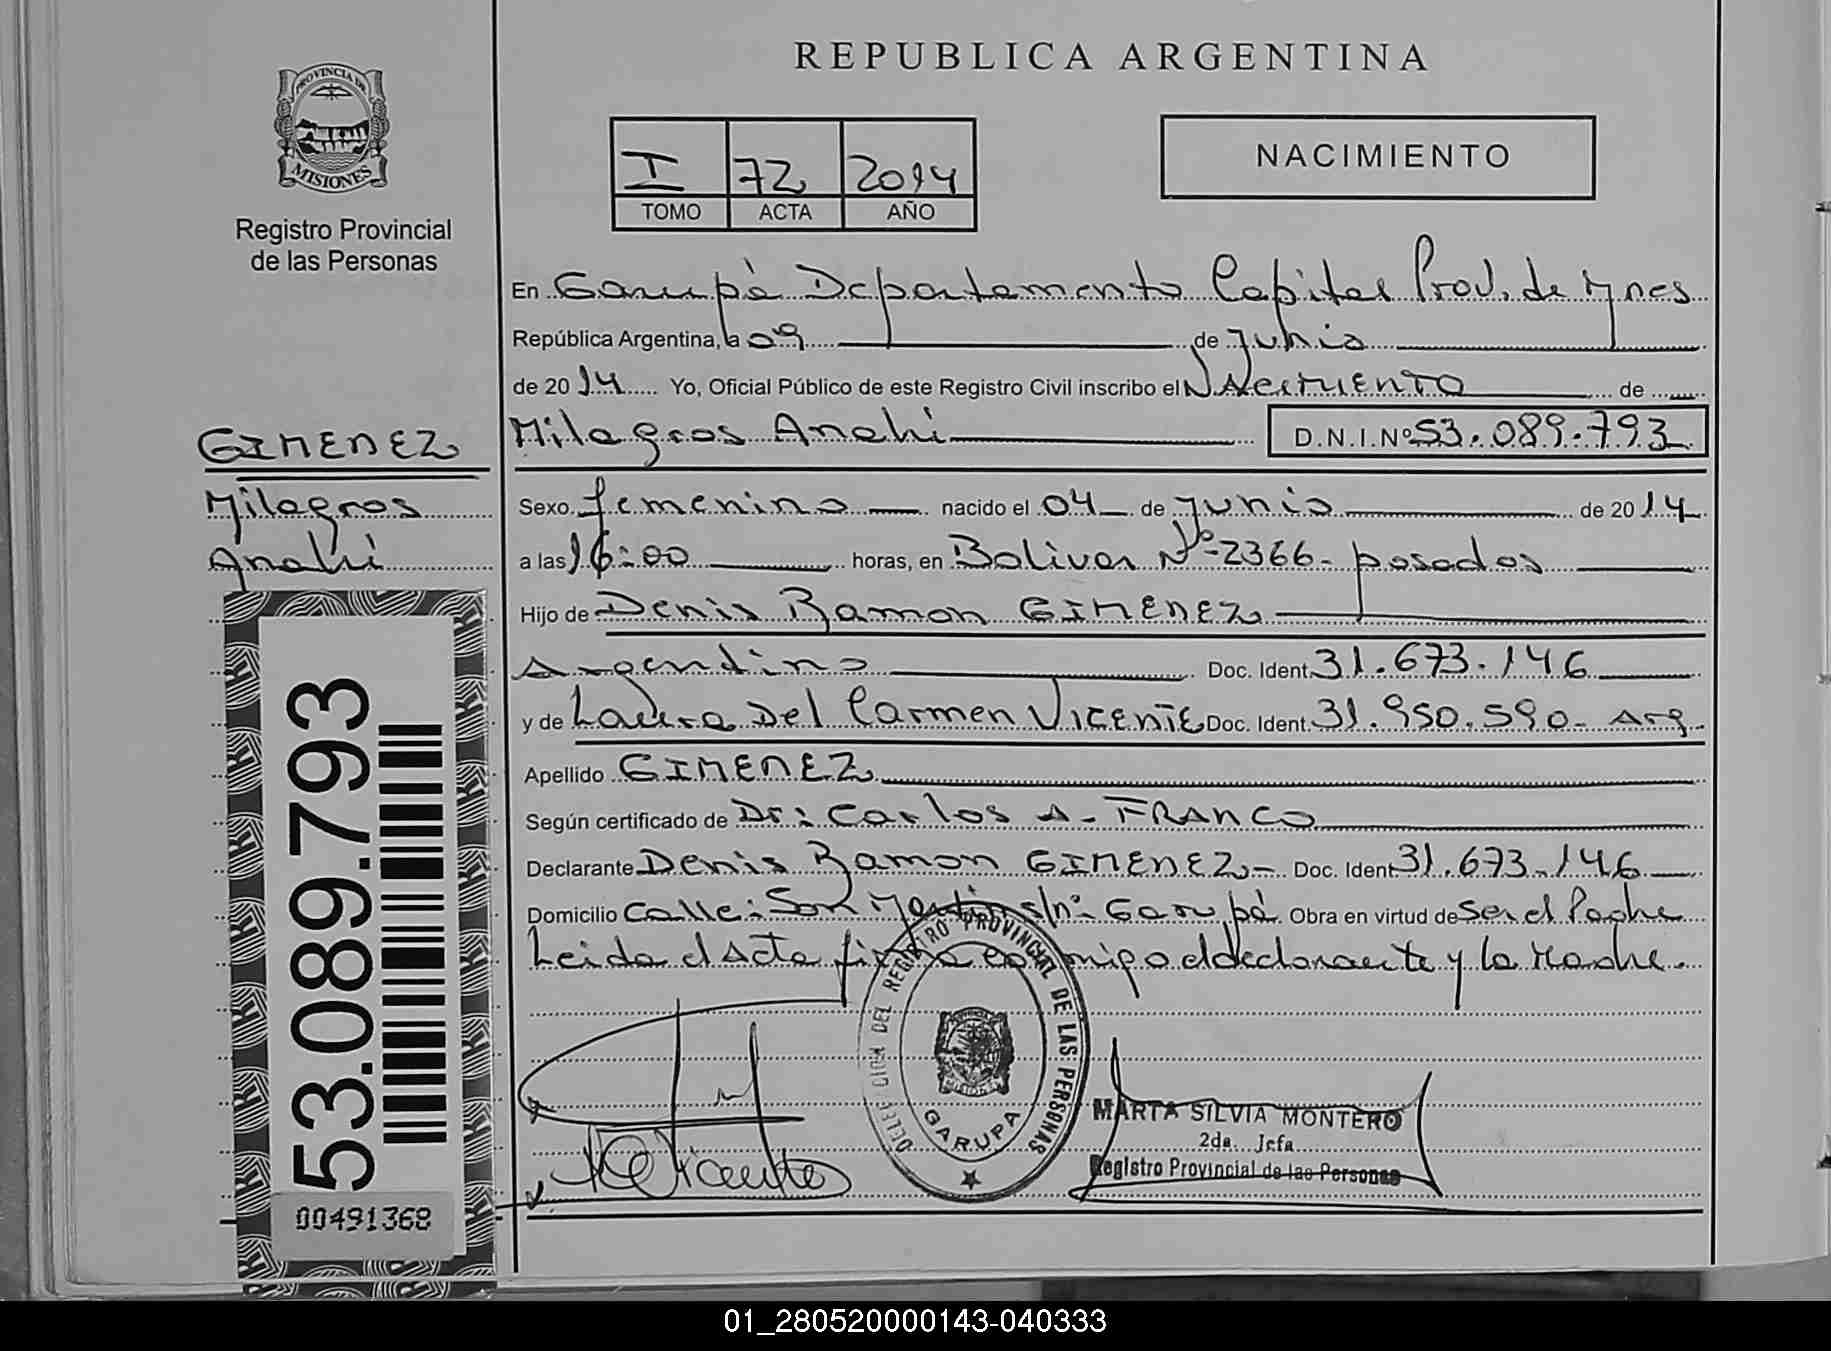 REPUBLICA ARGENTINA
PROVINCIA DE
MISIONES
Registro Provincial
de las Personas
I 72 2014
TOMO ACTA AÑO
NACIMIENTO
En Garupá Departamento Capital Prov. de Mnes
República Argentina, a 09 de Junio
de 2014 Yo, Oficial Público de este Registro Civil inscribo el NACIMIENTO de
GIMENEZ
Milagros Anahi
Milagros Anahi D.N.I.Nº 53.089.793
Sexo femenino nacido el 04 de Junio de 2014
a las 16:00 horas, en Bolivar Nº-2366- posadas
Hijo de Denis Ramon GIMENEZ
Argentino Doc. Ident. 31.673.146
y de Laura Del Carmen VICENTE Doc. Ident. 31.950.590- Arg.
Apellido GIMENEZ
Según certificado de Dr: Carlos A. FRANCO
Declarante Denis Ramon GIMENEZ- Doc. Ident. 31.673.146
Domicilio Calle: San Martin s/nº Garupá. Obra en virtud de Ser el Padre
Leida el Acta firma conmigo el declarante y la Madre.
53.089.793
00491368
DELEGACION DEL REGISTRO PROVINCIAL DE LAS PERSONAS
GARUPA
MISIONES
MARTA SILVIA MONTERO
2da. Jefa
Registro Provincial de las Personas
01_280520000143-040333